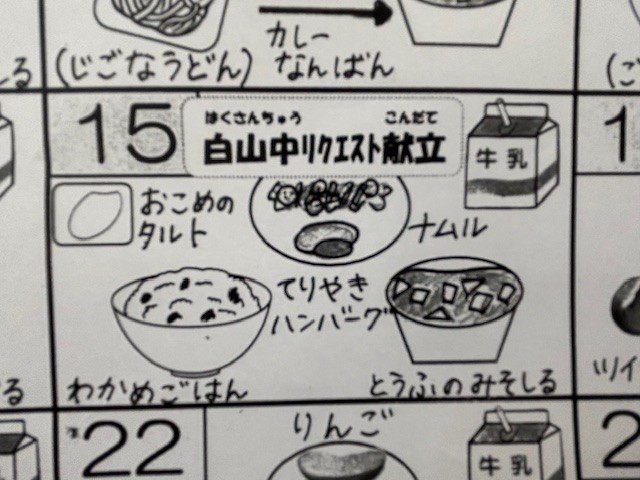 しる
(じごなうどん)
カレー
なんばん
(ご
15
はくさんちゅう こんだて
白山中リクエスト献立
牛乳
1
おこめの
タルト
ナムル
てりやき
ハンバーグ
わかめごはん
とうふのみそしる
ツイ
る
22
りんご
牛乳
2